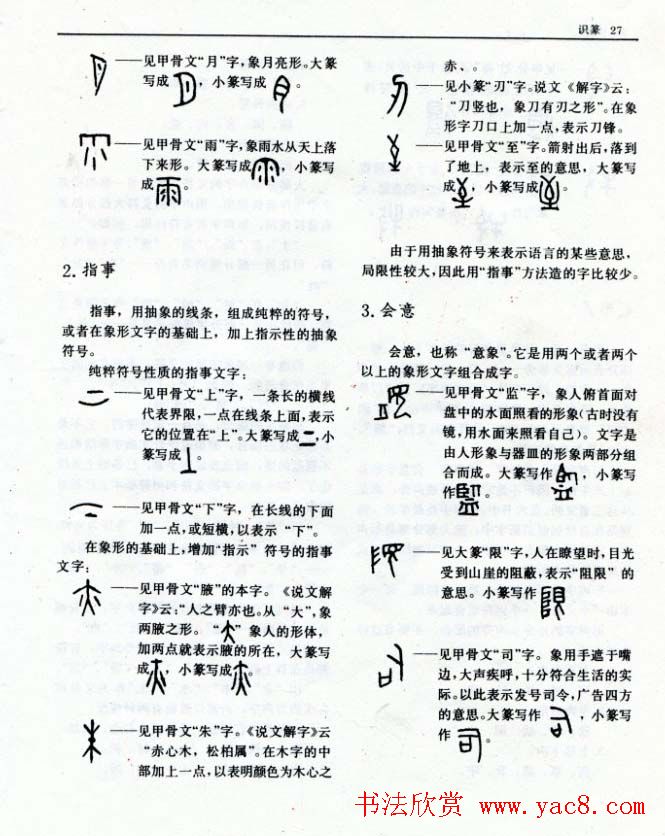 识篆 27
——见甲骨文“月”字,象月亮形。大篆
写成 ，小篆写成 。
——见甲骨文“雨”字,象雨水从天上落
下来形。大篆写成 ，小篆写
成 。
2. 指事
指事，用抽象的线条，组成纯粹的符号，
或者在象形文字的基础上，加上指示性的抽象
符号。
纯粹符号性质的指事文字：
——见甲骨文“上”字，一条长的横线
代表界限,一点在线条上面,表示
它的位置在“上”。大篆写成 ,小
篆写成 。
——见甲骨文“下”字，在长线的下面
加一点,或短横,以表示“下”。
在象形的基础上,增加“指示”符号的指事
文字：
——见甲骨文“腋”的本字。《说文解
字》云:“人之臂亦也。从“大”,象
两腋之形。“ ”象人的形体，
加两点就表示腋的所在，大篆写
成 ，小篆写成 。
——见甲骨文“朱”字。《说文解字》云
“赤心木，松柏属”。在木字的中
部加上一点,以表明颜色为木心之
赤、。
——见小篆“刃”字。说文《解字》云：
“刀竖也，象刀有刃之形”。在象
形字刀口上加一点,表示刀锋。
——见甲骨文“至”字。箭射出后,落到
了地上，表示至的意思，大篆写
成 ，小篆写成 。
由于用抽象符号来表示语言的某些意思，
局限性较大,因此用“指事”方法造的字比较少。
3. 会意
会意，也称“意象”。它是用两个或者两个
以上的象形文字组合成字。
——见甲骨文“监”字，象人俯首面对
盘中的水面照看的形象(古时没有
镜,用水面来照看自己)。文字是
由人形象与器皿的形象两部分组
合而成。大篆写作 ，小篆写
作 。
——见大篆“限”字,人在瞭望时,目光
受到山崖的阻蔽,表示“阻限”的
意思。小篆写作
——见甲骨文“司”字。象用手遮于嘴
边,大声疾呼,十分符合生活的实
际。以此表示发号司令,广告四方
的意思。大篆写作 ，小篆写
作 。
书法欣赏 www.yac8.com